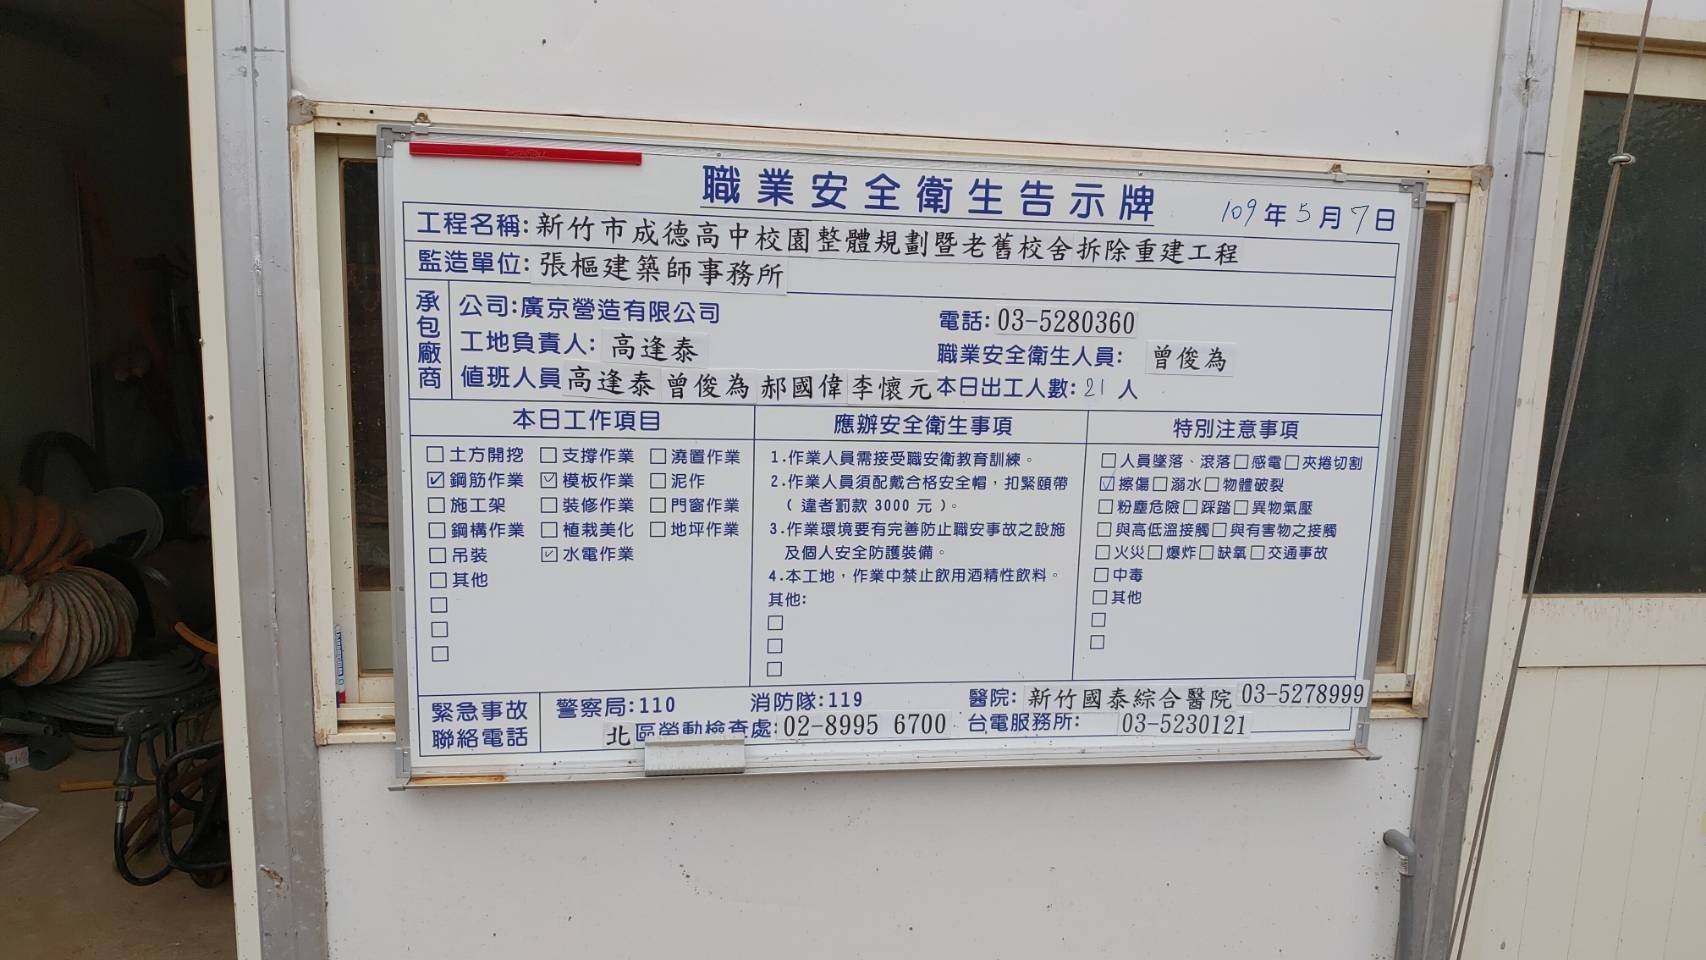 職業安全衛生告示牌
109年5月7日
工程名稱:新竹市成德高中校園整體規劃暨老舊校舍拆除重建工程
監造單位:張樞建築師事務所
承包廠商
公司:廣京營造有限公司
電話:03-5280360
工地負責人:高逢泰
職業安全衛生人員:曾俊為
值班人員高逢泰 曾俊為 郝國偉 李懷元
本日出工人數:21人
本日工作項目
□土方開挖 □支撐作業 □澆置作業
☑鋼筋作業 ☑模板作業 □泥作
□施工架 □裝修作業 □門窗作業
□鋼構作業 □植栽美化 □地坪作業
□吊裝 ☑水電作業
□其他
□
□
□
應辦安全衛生事項
1.作業人員需接受職安衛教育訓練。
2.作業人員須配戴合格安全帽，扣緊頤帶
(違者罰款3000元)。
3.作業環境要有完善防止職安事故之設施
及個人安全防護裝備。
4.本工地，作業中禁止飲用酒精性飲料。
其他:
□
□
□
特別注意事項
□人員墜落、滾落□感電□夾捲切割
☑擦傷□溺水□物體破裂
□粉塵危險□踩踏□異物氣壓
□與高低溫接觸□與有害物之接觸
□火災□爆炸□缺氧□交通事故
□中毒
□其他
□
□
緊急事故
聯絡電話
警察局:110 消防隊:119 醫院:新竹國泰綜合醫院 03-5278999
北區勞動檢查處:02-8995 6700 台電服務所: 03-5230121